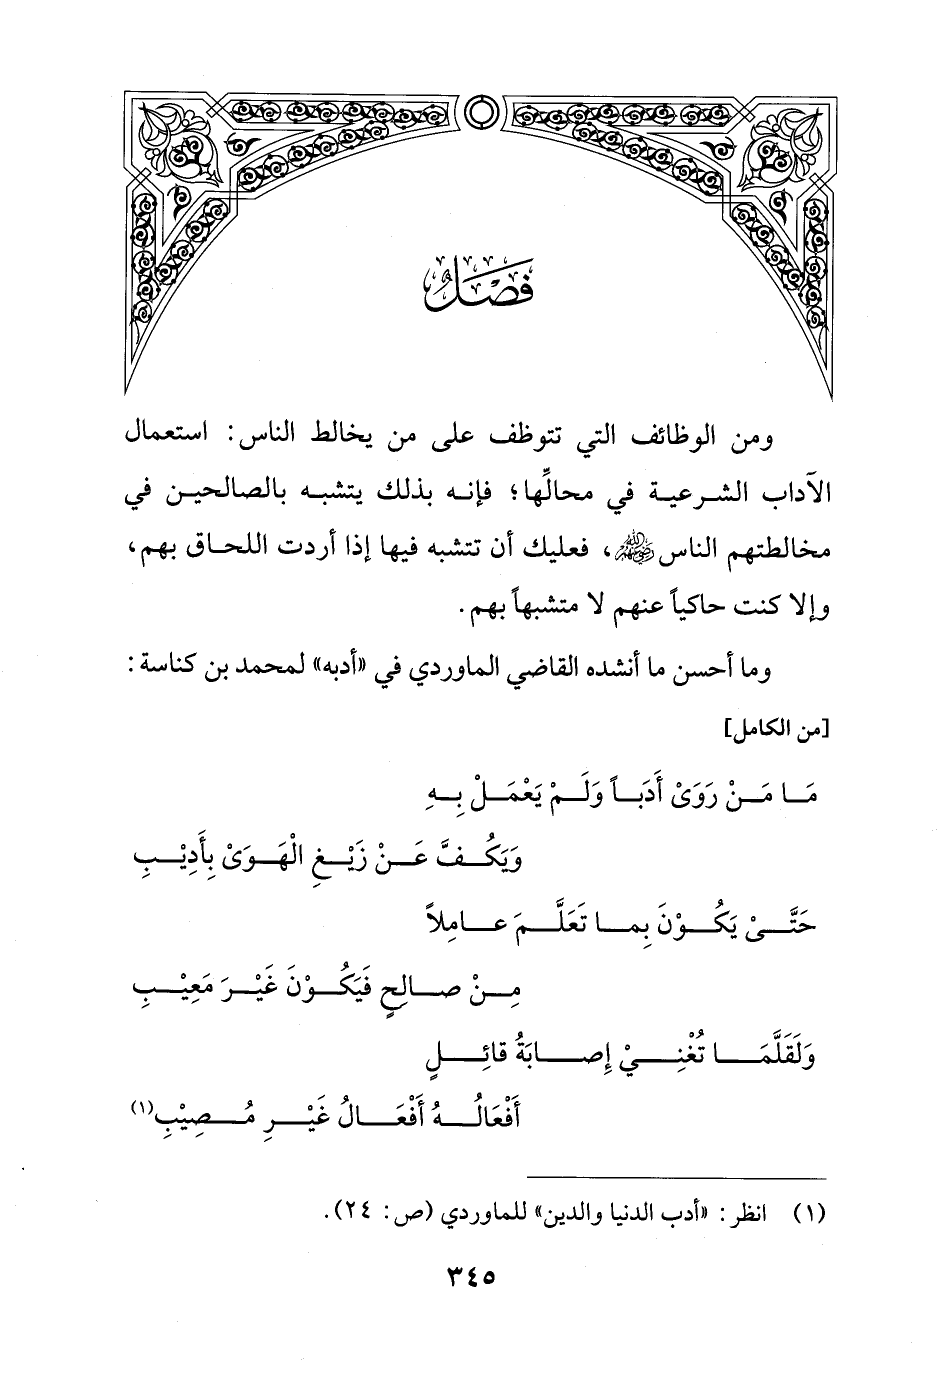 فَصْلٌ
ومن الوظائف التي تتوظف على من يخالط الناس: استعمال
الآداب الشرعية في محالِّها؛ فإنه بذلك يتشبه بالصالحين في
مخالطتهم الناس رضي الله عنهم، فعليك أن تتشبه فيها إذا أردت اللحاق بهم،
وإلا كنت حاكياً عنهم لا متشبهاً بهم.
وما أحسن ما أنشده القاضي الماوردي في «أدبه» لمحمد بن كناسة:
[من الكامل]
مَا مَنْ رَوَىْ أَدَباً وَلَمْ يَعْمَلْ بِهِ
وَيَكُفَّ عَنْ زَيْغِ الْهَوَىْ بِأَدِيْبِ
حَتَّىْ يَكُوْنَ بِما تَعَلَّمَ عامِلاً
مِنْ صالِحٍ فَيَكُوْنَ غَيْرَ مَعِيْبِ
وَلَقَلَّمَا تُغْنِيْ إِصابَةُ قائِلٍ
أَفْعَالُهُ أَفْعَالُ غَيْرِ مُصِيْبِ(١)
(١) انظر: «أدب الدنيا والدين» للماوردي (ص: ٢٤).
٣٤٥